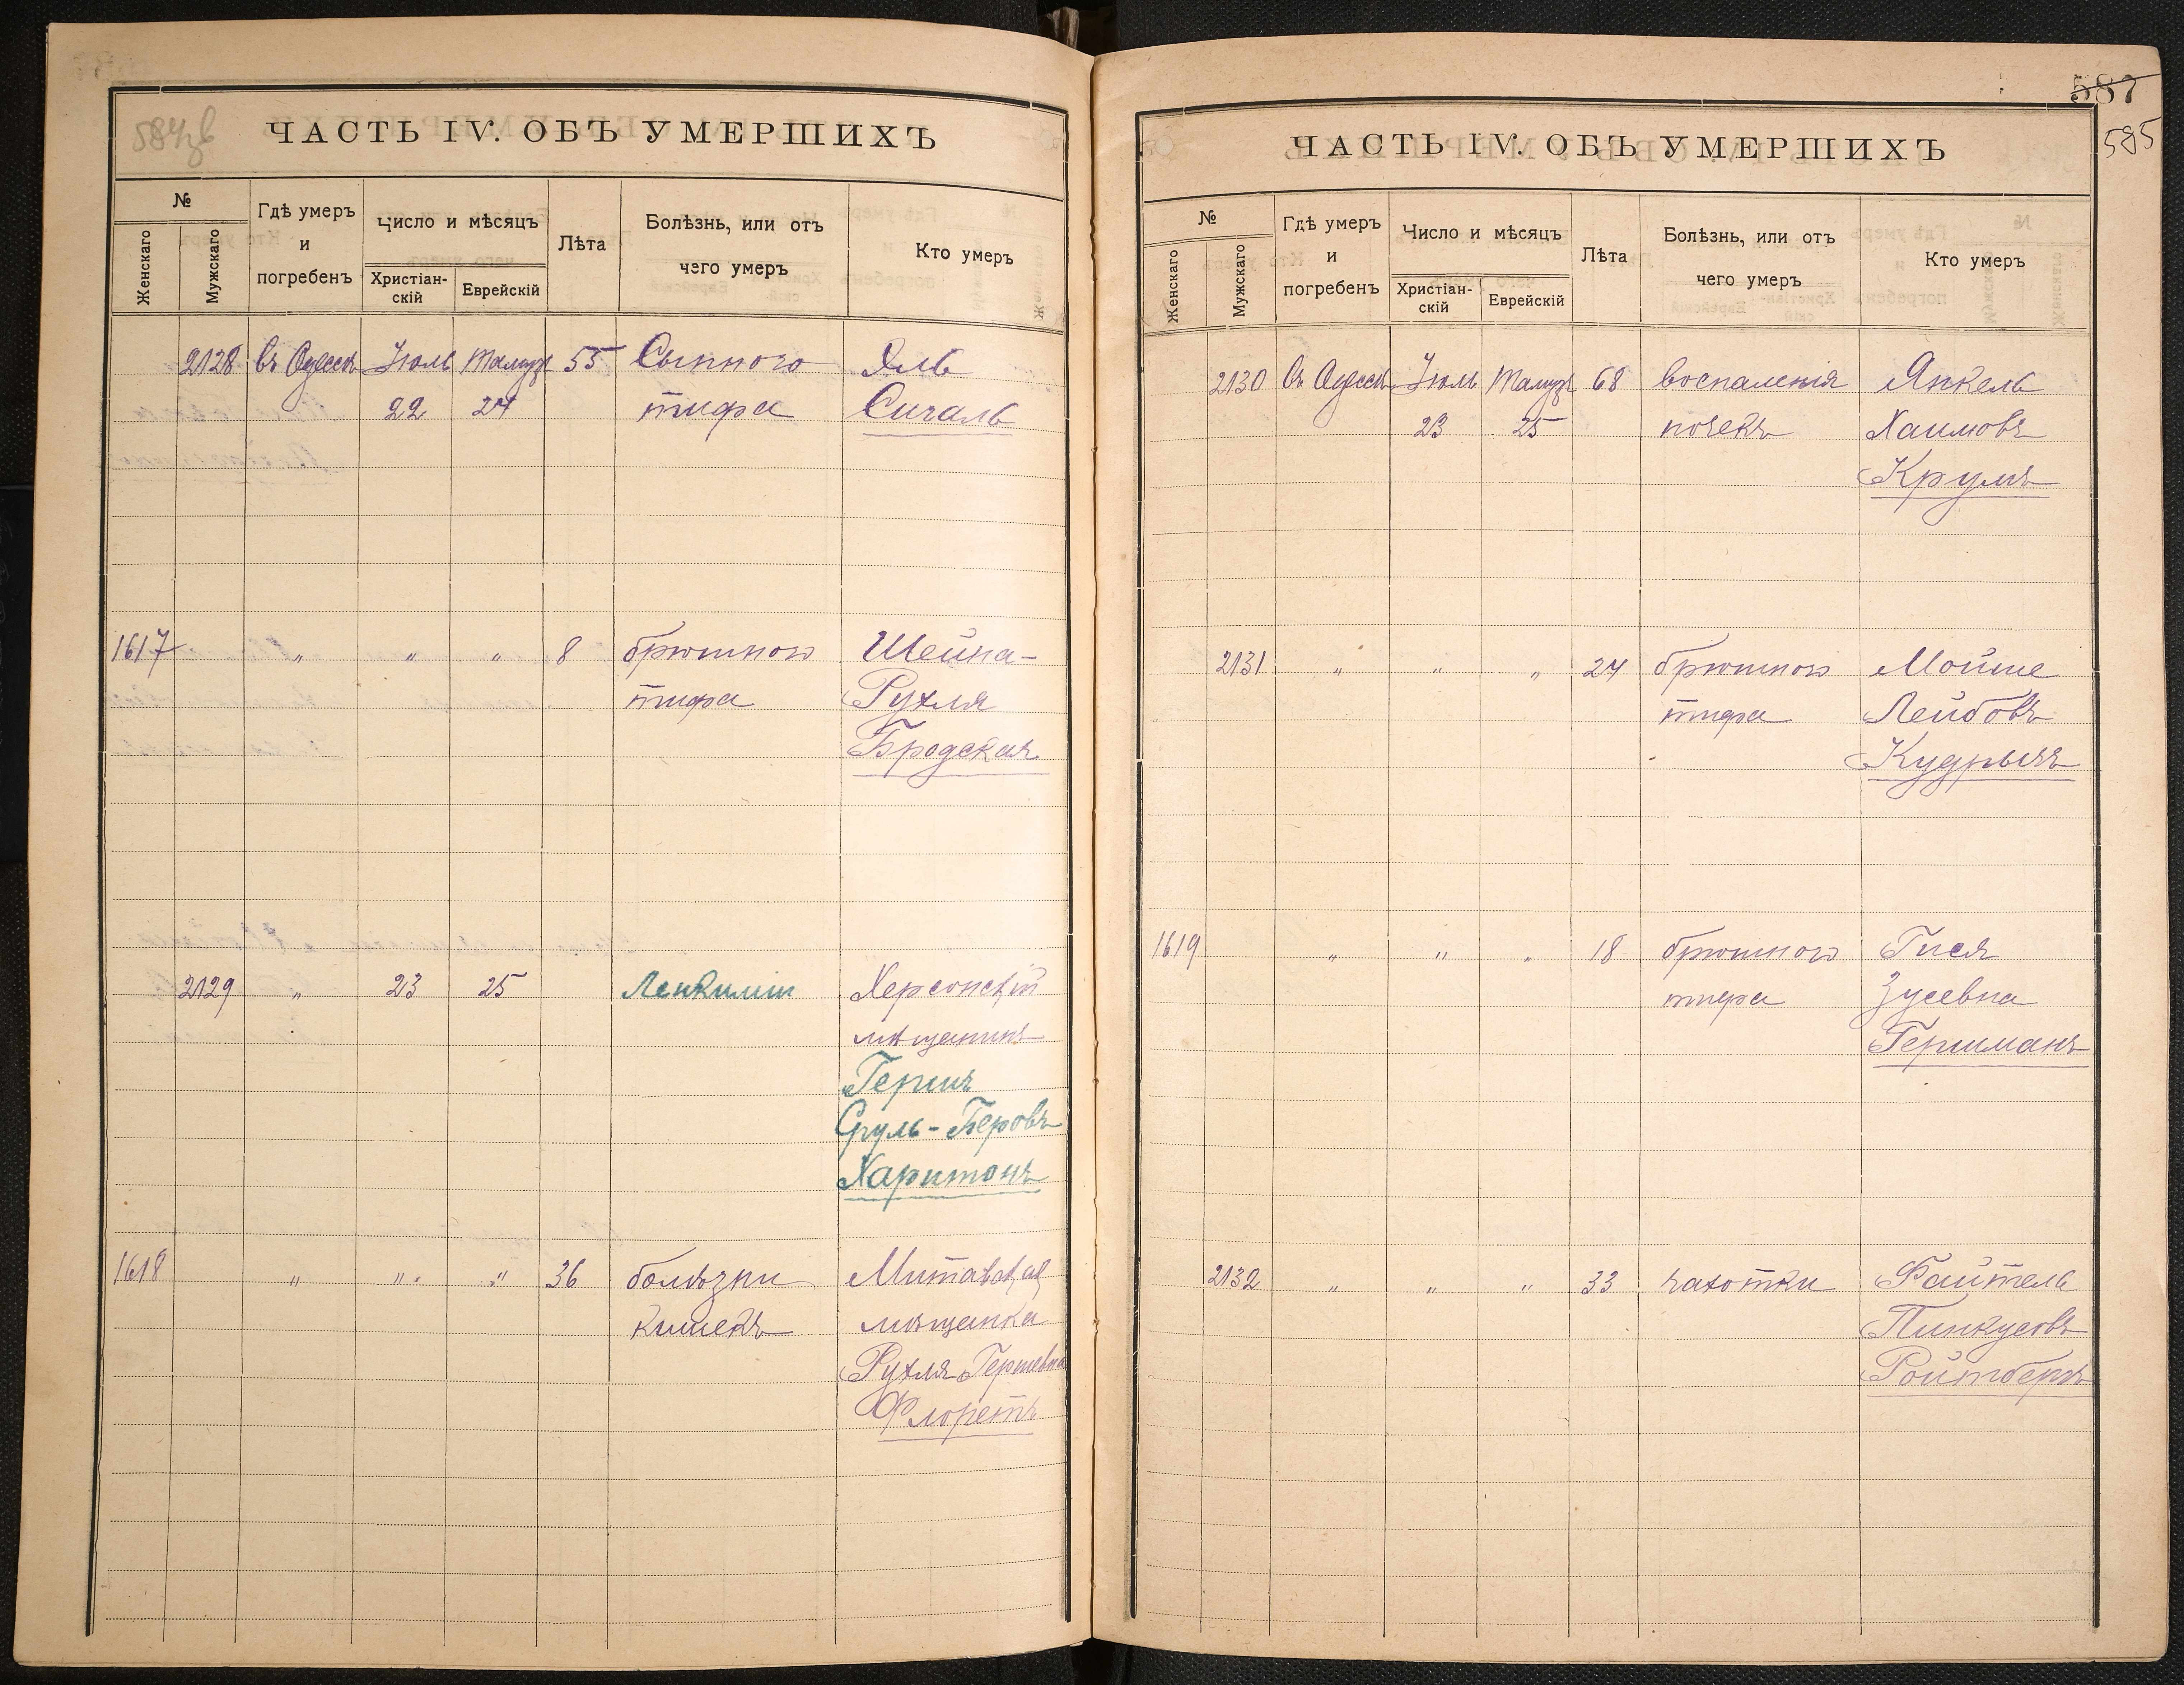 584об
ЧАСТЬ IV. ОБЪ УМЕРШИХЪ
№
Женскаго
Мужскаго
Гдѣ умеръ
и
погребенъ
Число и мѣсяцъ
Христіан-
скій
Еврейскій
Лѣта
Болѣзнь, или отъ
чего умеръ
Кто умеръ
2128 въ Одессѣ Іюль Тамузъ 55 Сыпного
22 24 тифа Сигалъ
1617 " " " 8 брюшного Шейна-
тифа Рухля
Бродская
2129 " 23 25 Лейкиміи Херсонскій
мѣщанинъ
Гершъ
Сруль-Беровъ
Харитонъ
1618 " " " 36 болѣзни Митавская
кишекъ мѣщанка
Рухля Гершевна
Флоретъ
587
585
ЧАСТЬ IV. ОБЪ УМЕРШИХЪ
№
Женскаго
Мужскаго
Гдѣ умеръ
и
погребенъ
Число и мѣсяцъ
Христіан-
скій
Еврейскій
Лѣта
Болѣзнь, или отъ
чего умеръ
Кто умеръ
2130 въ Одессѣ Іюль Тамузъ 68 воспаленія Янкель
23 25 почекъ Хаимовъ
Круль
2131 " " " 24 брюшного Мойше
тифа Лейбовъ
1619 " " " 18 брюшного Гися
тифа Зусевна
Гершманъ
2132 " " " 33 чахотки Файтель
Пинкусовъ
Ройтбергъ